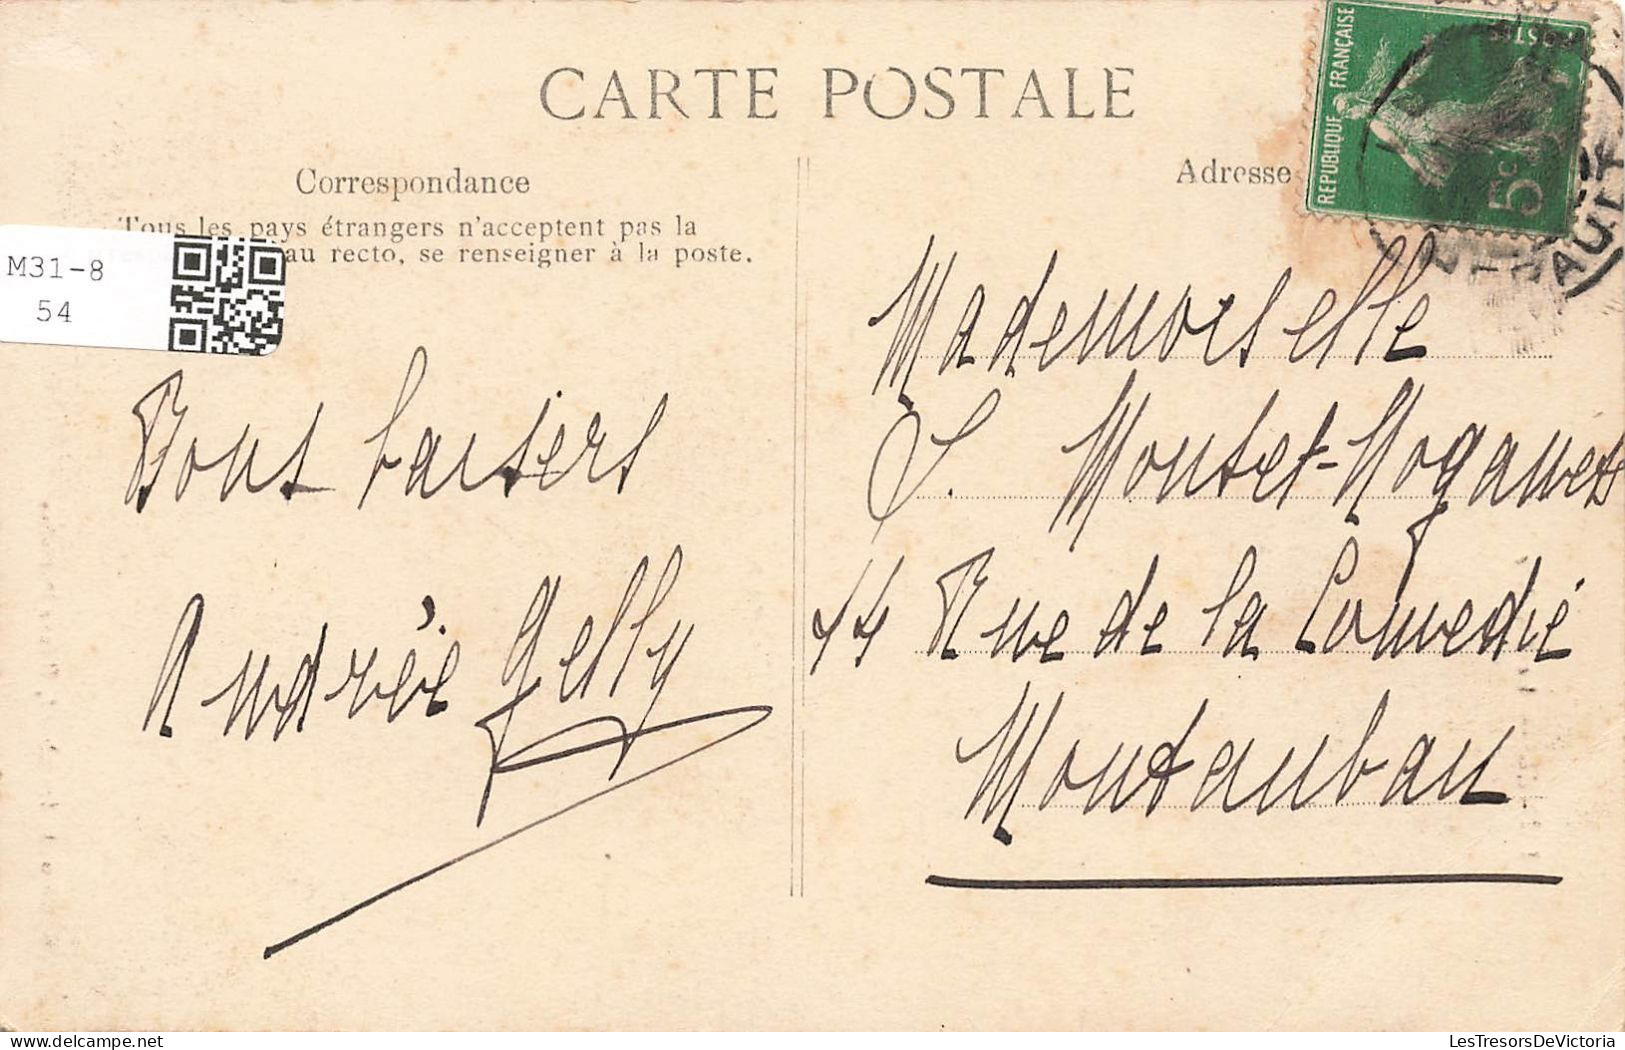 CARTE POSTALE
Correspondance
Tous les pays étrangers n'acceptent pas la
au recto, se renseigner à la poste.
M31-8
54
Bons baisers
Andrée Gelly
Adresse
REPUBLIQUE FRANÇAISE
POSTES
5c
AUDE
Mademoiselle
S. Montet-Noganets
44 Rue de la Comedie
Montauban
LesTresorsDeVictoria